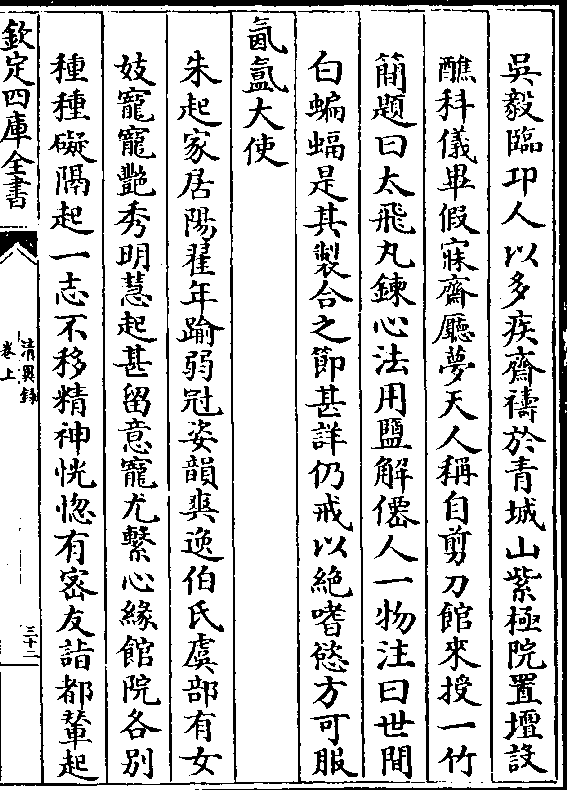 吳毅臨卭人以多疾齋禱於青城山紫極院置壇設
醮科儀畢假寐齋廳夢天人稱自剪刀館來授一竹
簡題曰太飛丸鍊心法用鹽解僊人一物注曰世間
白蝙蝠是其製合之節甚詳仍戒以絶嗜慾方可服
氤氲大使
朱起家居陽翟年踰弱冠姿韻爽逸伯氏虞部有女
妓寵寵艷秀明慧起甚留意寵尤繫心緣館院各别
種種礙隔起一志不移精神恍惚有宻友詣都輦起
欽定四庫全書
清異錄
卷上
三十二